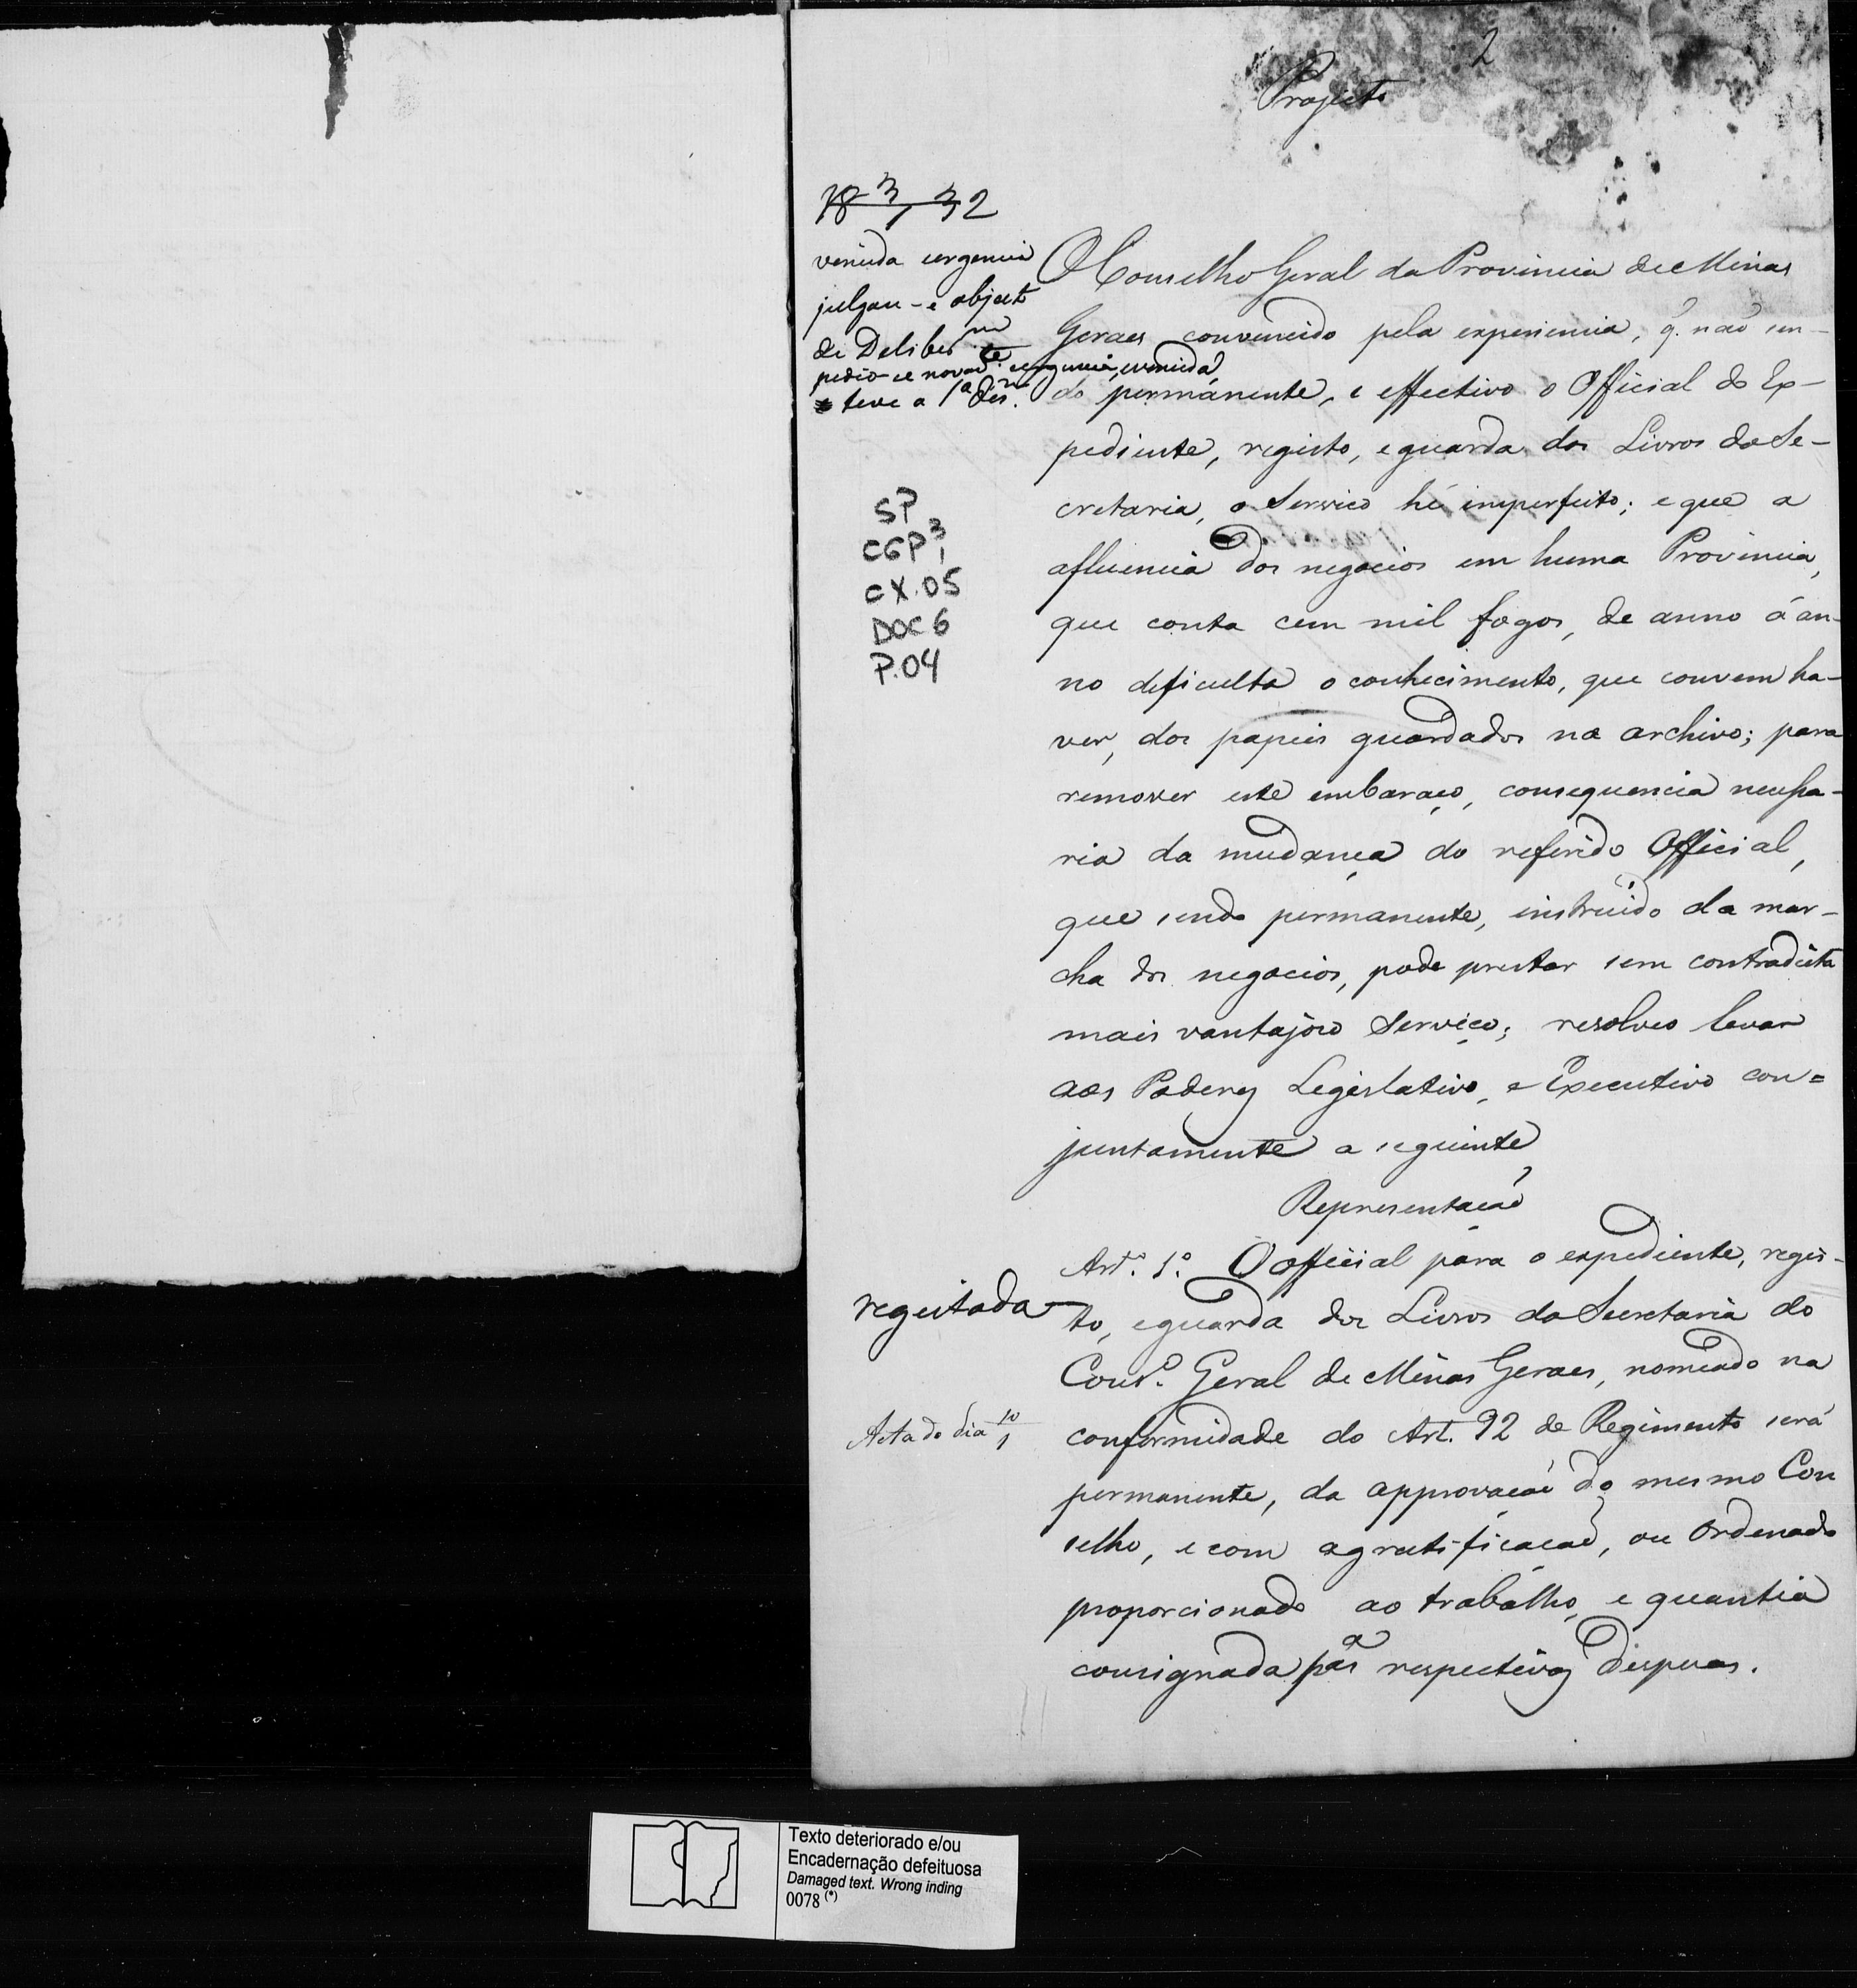 2
Projecto
18 3/1 32
vencida urgencia
julgou-se objecto
de Deliber
pedio-se nova urgencia, vencida
e teve a 1ª dis.
SP
CGP 3/1
CX.05
DOC 6
P.04
O Conselho Geral da Provincia de Minas
Geraes convencido pela experiencia, q. naõ sen-
do permanente, e effectivo o Official do Ex-
pediente, registo, e guarda dos Livros da Se-
cretaria, o Serviço hé imperfeito; e que a
afluencia dos negocios em huma Provincia,
que conta cem mil fogos, de anno á an-
no deficulta o conhecimento, que convem ha-
ver, dos papeis guardados no archivo; para
remover este embaraço, consequencia necessa-
ria da mudança do referido Official,
que sendo permanente, instruido da mar-
cha dos negocios, pode prestar sem contradicta
mais vantajoso Serviço; resolveo levar
aos Poderes Legislativo, e Executivo con=
juntamente a seguinte
Representaçaõ
regeitada
Artº. 1º. O official para o expediente, regis-
to, e guarda dos Livros da Secretaria do
Consº. Geral de Minas Geraes, nomeado na
Acta do dia 10/1
conformidade do Art. 92 de Regimento será
permanente, da approvaçaõ do mesmo Con
selho, e com a gratificaçaõ, ou Ordenado
proporcionado ao trabalho, e quantia
consignada pª as respectivas despesas.
Texto deteriorado e/ou
Encadernação defeituosa
Damaged text. Wrong inding
0078 (*)